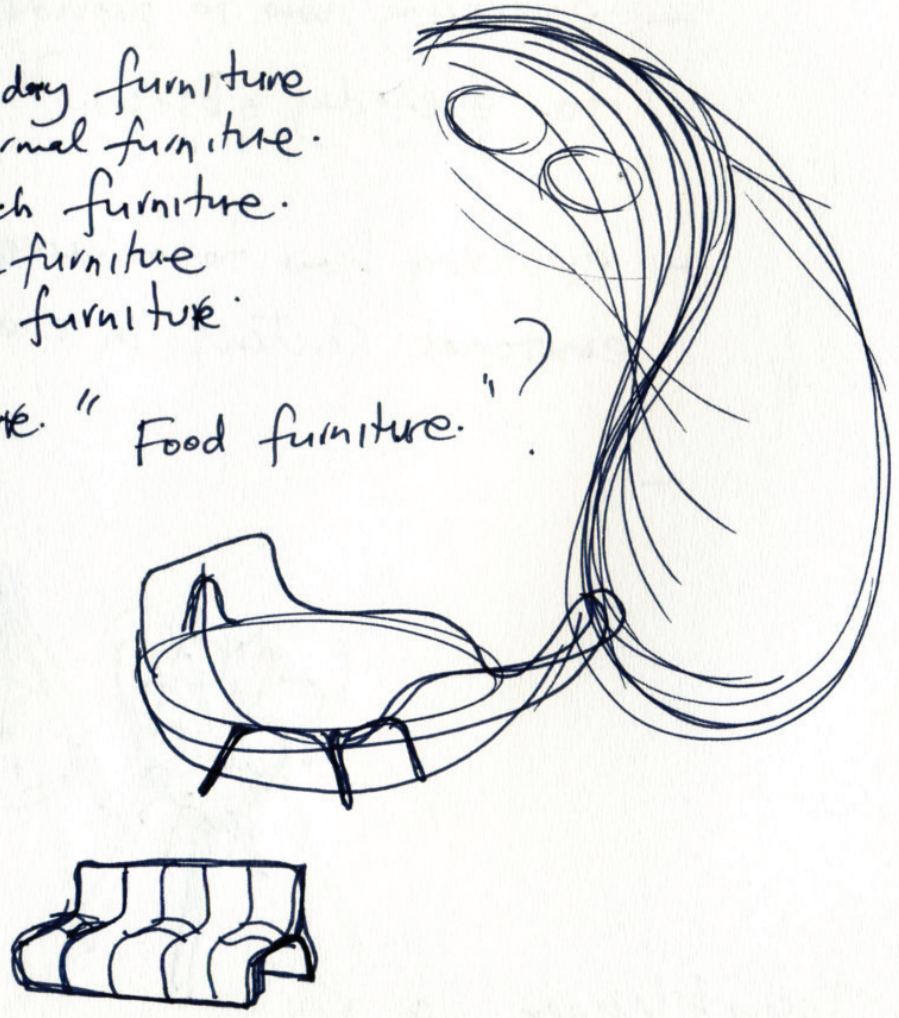 day furniture
rmal furniture.
ch furniture.
furniture
furniture.
re. " Food furniture. " ?